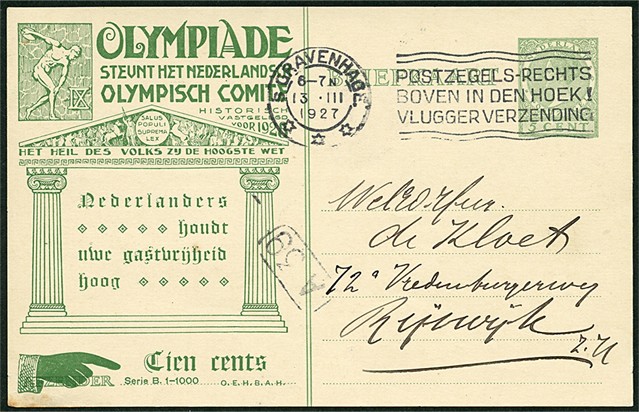 OLYMPIADE
STEUNT HET NEDERLANDS
OLYMPISCH COMIT
IX
HISTORISCH
VASTGELEGD
VOOR 1928
SALUS
POPULI
SUPREMA
LEX
HET HEIL DES VOLKS ZY DE HOOGSTE WET
Nederlanders
houdt
uwe gastvrijheid
hoog
Tien cents
Serie B. 1-1000
O.E.H.B.A.H.
'S-GRAVENHAGE
6-7N
13 III
1927
POSTZEGELS-RECHTS
BOVEN IN DEN HOEK!
VLUGGER VERZENDING
5 CENT
439
de Kloet
72a Vredenburgerweg
Rijswijk
Z.H